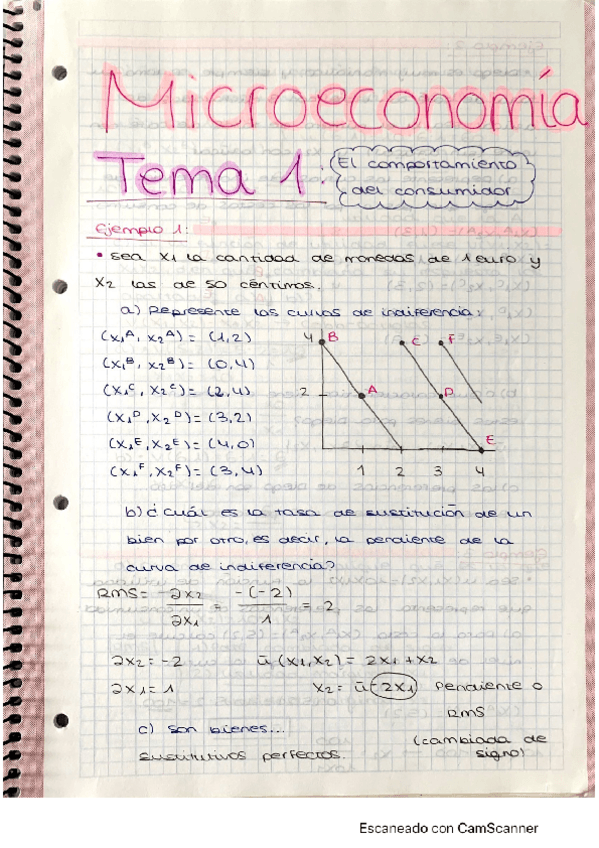 Microeconomía
Tema 1: El comportamiento
del consumidor
Ejemplo 1:
• sea x1 la cantidad de monedas de 1 euro y
x2 las de 50 céntimos.
a) Represente las curvas de indiferencia:
(x1^A, x2^A) = (1,2)
(x1^B, x2^B) = (0,4)
(x1^C, x2^C) = (2,4)
(x1^D, x2^D) = (3,2)
(x1^E, x2^E) = (4,0)
(x1^F, x2^F) = (3,4)
4 B C F
2 A D
E
1 2 3 4
b) ¿Cuál es la tasa de sustitución de un
bien por otro, es decir, la pendiente de la
curva de indiferencia?
RMS = -∂x2/∂x1 = -(-2)/1 = 2
∂x2 = -2 ū(x1,x2) = 2x1 + x2
∂x1 = 1 x2 = ū - 2x1 Pendiente o
RMS
c) son bienes... (cambiada de
sustitutivos perfectos. signo)
Escaneado con CamScanner